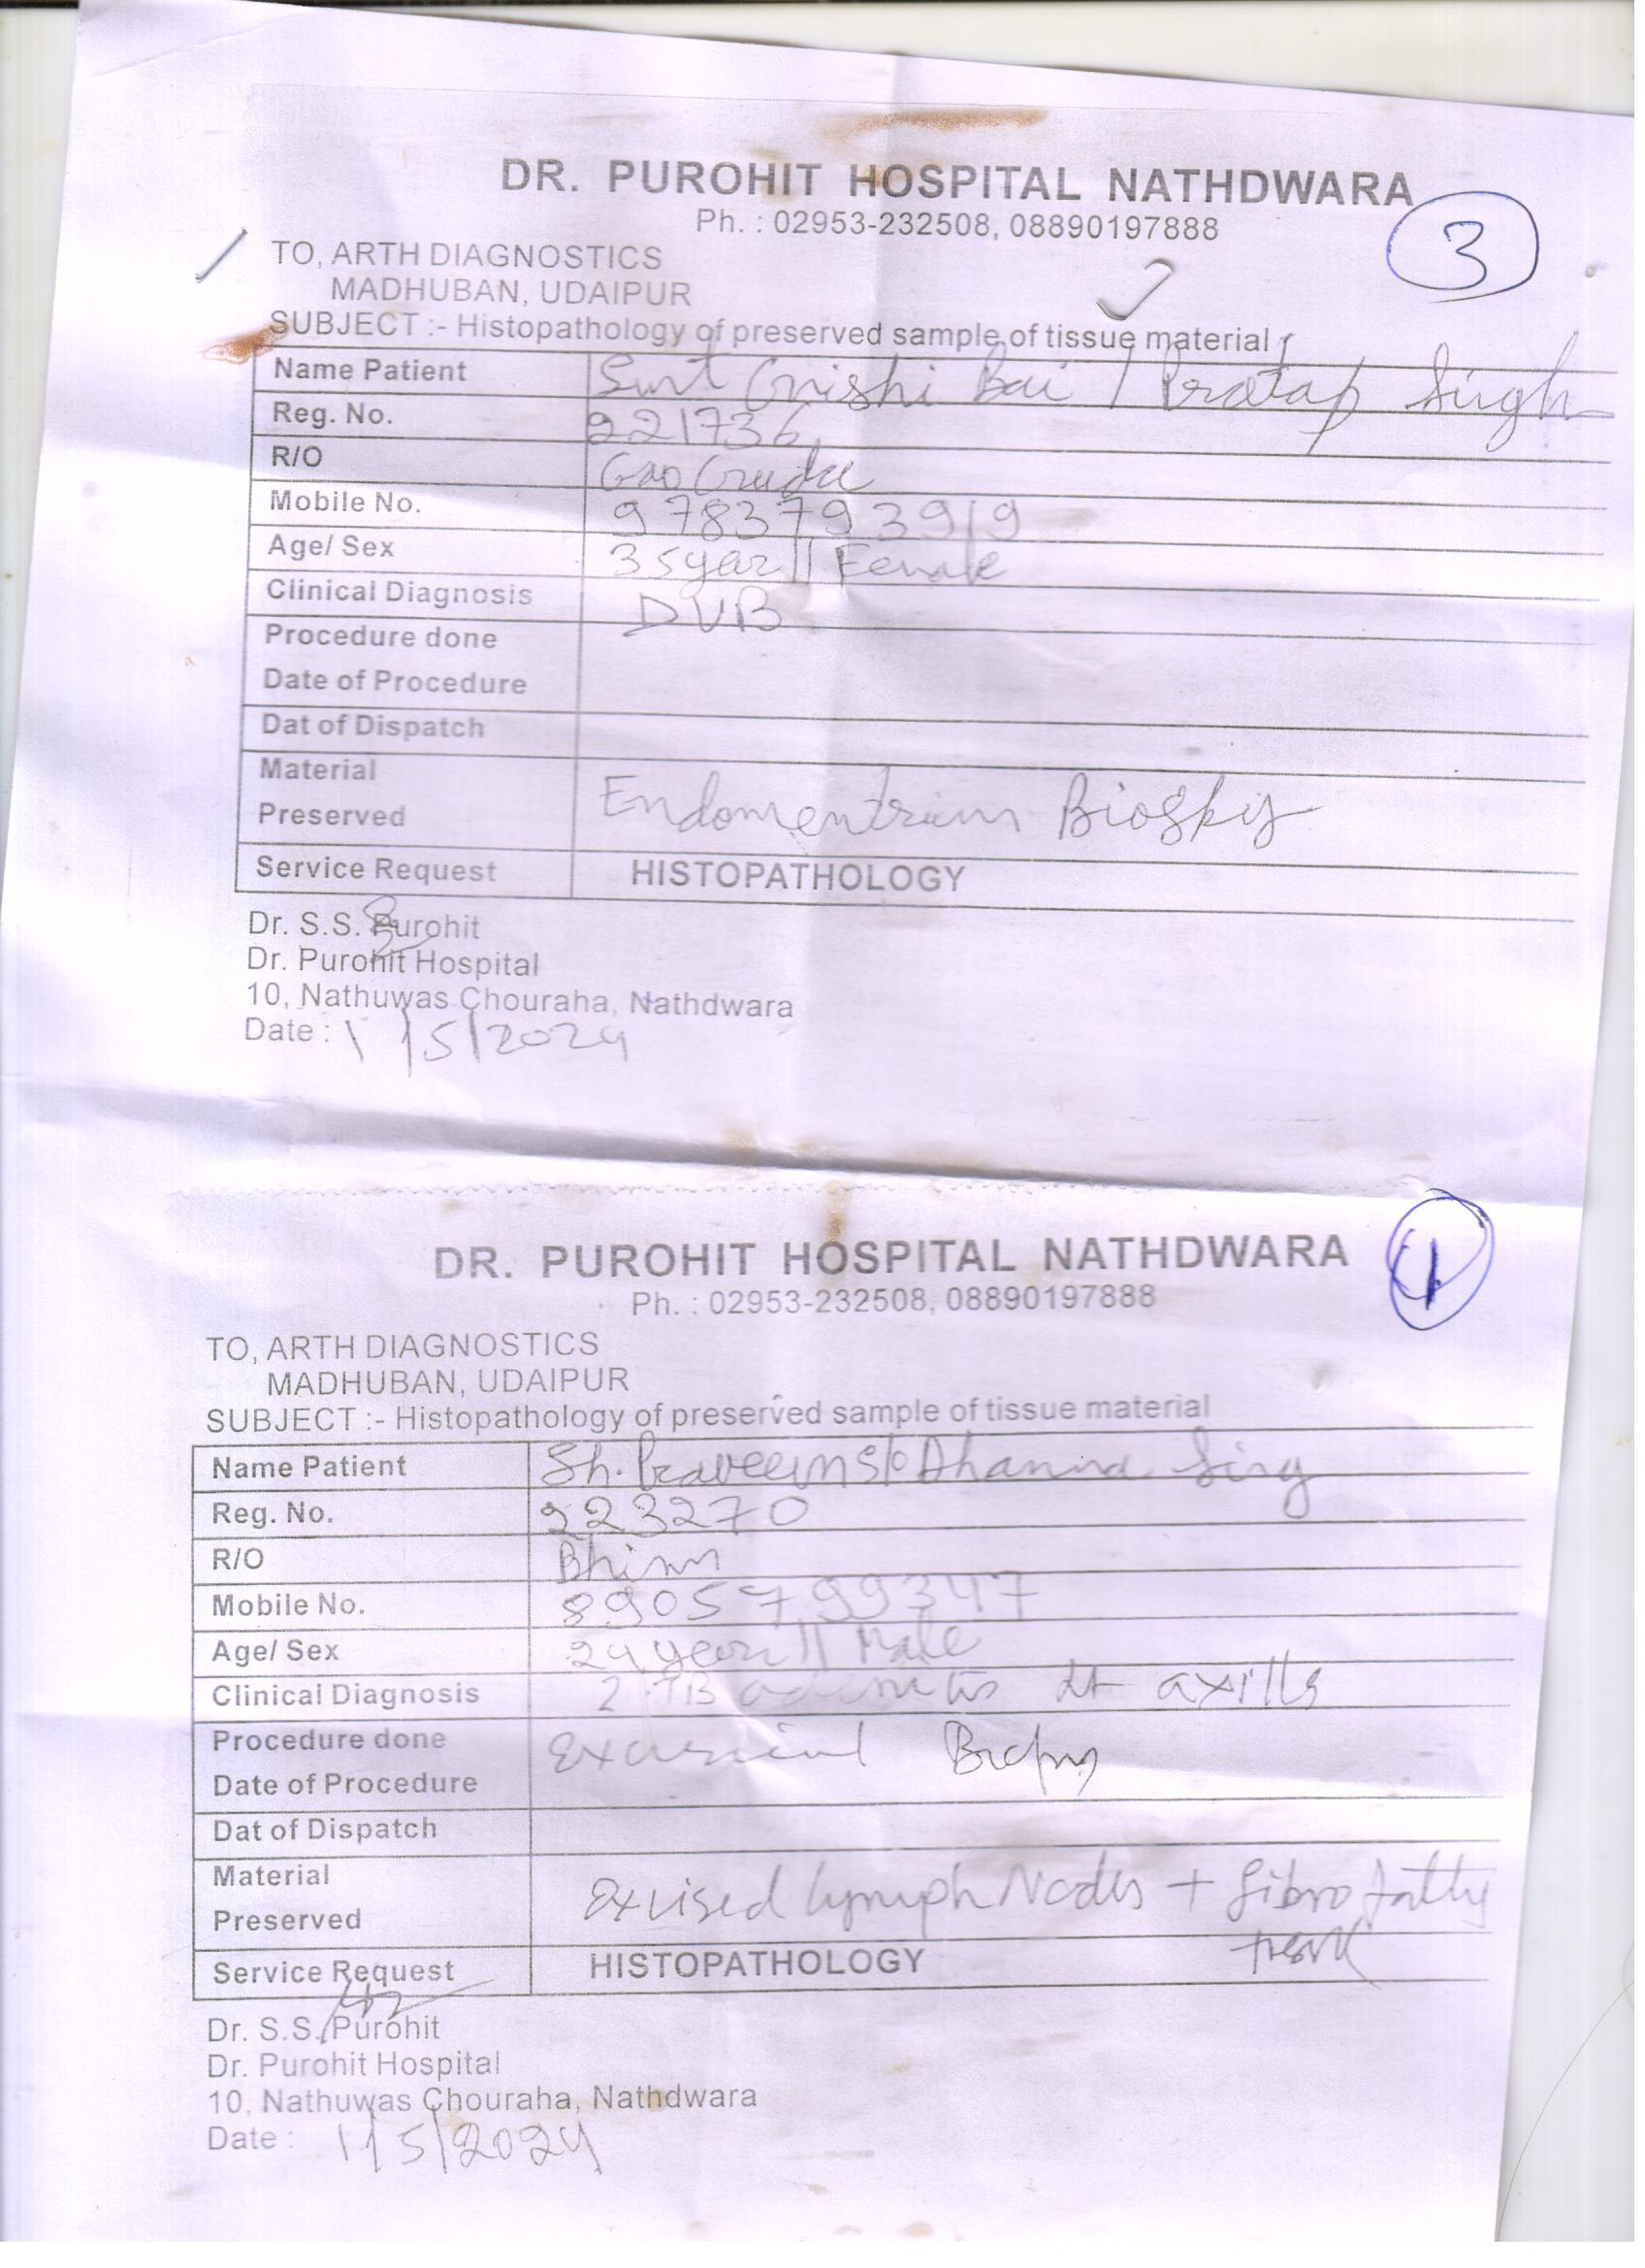 DR. PUROHIT HOSPITAL NATHDWARA
3
Ph. : 02953-232508, 08890197888
TO, ARTH DIAGNOSTICS
MADHUBAN, UDAIPUR
SUBJECT :- Histopathology of preserved sample of tissue material
Name Patient Smt Bai / Pratap Singh
Reg. No. 221736
R/O
Mobile No. 9783793919
Age/ Sex 35 year || Female
Clinical Diagnosis DUB
Procedure done
Date of Procedure
Dat of Dispatch
Material
Preserved Endomentrium
Service Request HISTOPATHOLOGY
Dr. S.S. Purohit
Dr. Purohit Hospital
10, Nathuwas Chouraha, Nathdwara
Date : 1/5/2024
DR. PUROHIT HOSPITAL NATHDWARA
1
Ph. : 02953-232508, 08890197888
TO, ARTH DIAGNOSTICS
MADHUBAN, UDAIPUR
SUBJECT :- Histopathology of preserved sample of tissue material
Name Patient Sh. Praveen s/o Dhanna Sing
Reg. No. 223270
R/O Bhim
Mobile No. 8905799347
Age/ Sex 29 year || Male
Clinical Diagnosis ? TB adenitis axilla
Procedure done Excisional Biopsy
Date of Procedure
Dat of Dispatch
Material
Preserved Excised lymph Nodes + fibrofatty
tissue
Service Request HISTOPATHOLOGY
Dr. S.S. Purohit
Dr. Purohit Hospital
10, Nathuwas Chouraha, Nathdwara
Date : 1/5/2024